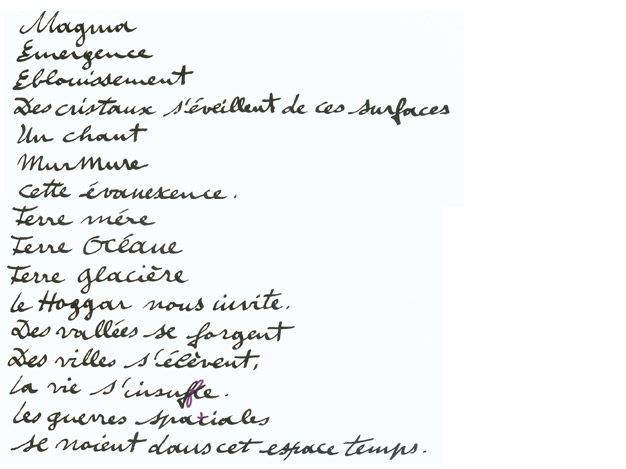 Magma
Emergence
Eblouissement
Des cristaux s'éveillent de ces surfaces
Un chant
MurMure
cette évanexence.
Terre mére
Terre Océane
Terre glacière
le Hoggar nous invite.
Des vallées se forgent
Des villes s'élèvent,
la vie s'insufle.
les guerres spatiales
se noient dans cet espace temps.